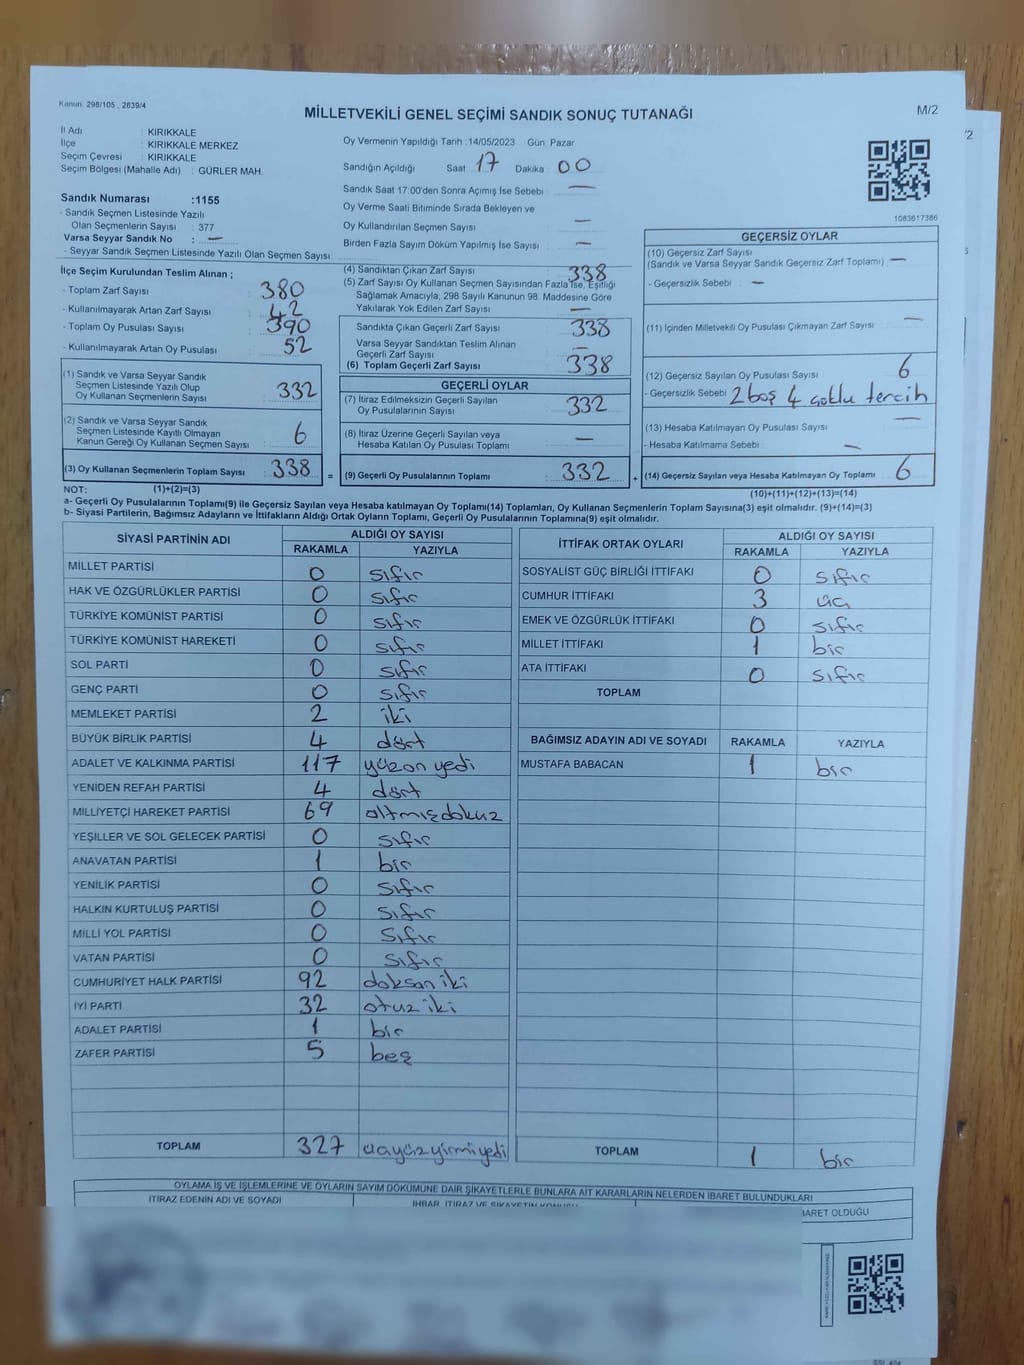 Kanun: 298/105 , 2839/4
MİLLETVEKİLİ GENEL SEÇİMİ SANDIK SONUÇ TUTANAĞI
M/2
İl Adı : KIRIKKALE
İlçe : KIRIKKALE MERKEZ
Seçim Çevresi : KIRIKKALE
Seçim Bölgesi (Mahalle Adı) : GÜRLER MAH.
Oy Vermenin Yapıldığı Tarih :14/05/2023 Gün: Pazar
Sandığın Açıldığı Saat 17 Dakika 00
Sandık Saat 17:00'den Sonra Açımış İse Sebebi : —
Oy Verme Saati Bitiminde Sırada Bekleyen ve
Oy Kullandırılan Seçmen Sayısı : —
Birden Fazla Sayım Döküm Yapılmış İse Sayısı : —
1083617386
Sandık Numarası :1155
- Sandık Seçmen Listesinde Yazılı
Olan Seçmenlerin Sayısı : 377
Varsa Seyyar Sandık No : —
- Seyyar Sandık Seçmen Listesinde Yazılı Olan Seçmen Sayısı:
İlçe Seçim Kurulundan Teslim Alınan ;
- Toplam Zarf Sayısı : 380
- Kullanılmayarak Artan Zarf Sayısı : 42
- Toplam Oy Pusulası Sayısı : 390
- Kullanılmayarak Artan Oy Pusulası : 52
(1) Sandık ve Varsa Seyyar Sandık
Seçmen Listesinde Yazılı Olup
Oy Kullanan Seçmenlerin Sayısı : 332
(2) Sandık ve Varsa Seyyar Sandık
Seçmen Listesinde Kayıtlı Olmayan
Kanun Gereği Oy Kullanan Seçmen Sayısı : 6
(3) Oy Kullanan Seçmenlerin Toplam Sayısı : 338
(1)+(2)=(3)
(4) Sandıktan Çıkan Zarf Sayısı : 338
(5) Zarf Sayısı Oy Kullanan Seçmen Sayısından Fazla İse, Eşitliği
Sağlamak Amacıyla, 298 Sayılı Kanunun 98. Maddesine Göre
Yakılarak Yok Edilen Zarf Sayısı : —
Sandıkta Çıkan Geçerli Zarf Sayısı : 338
Varsa Seyyar Sandıktan Teslim Alınan
Geçerli Zarf Sayısı : —
(6) Toplam Geçerli Zarf Sayısı : 338
GEÇERLİ OYLAR
(7) İtiraz Edilmeksizin Geçerli Sayılan
Oy Pusulalarının Sayısı : 332
(8) İtiraz Üzerine Geçerli Sayılan veya
Hesaba Katılan Oy Pusulası Toplamı : —
= (9) Geçerli Oy Pusulalarının Toplamı : 332 +
GEÇERSİZ OYLAR
(10) Geçersiz Zarf Sayısı
(Sandık ve Varsa Seyyar Sandık Geçersiz Zarf Toplamı) : —
- Geçersizlik Sebebi : —
(11) İçinden Milletvekili Oy Pusulası Çıkmayan Zarf Sayısı : —
(12) Geçersiz Sayılan Oy Pusulası Sayısı : 6
- Geçersizlik Sebebi : 2 boş 4 çoklu tercih
(13) Hesaba Katılmayan Oy Pusulası Sayısı : —
- Hesaba Katılmama Sebebi : —
(14) Geçersiz Sayılan veya Hesaba Katılmayan Oy Toplamı : 6
(10)+(11)+(12)+(13)=(14)
NOT:
a- Geçerli Oy Pusulalarının Toplamı(9) ile Geçersiz Sayılan veya Hesaba katılmayan Oy Toplamı(14) Toplamları, Oy Kullanan Seçmenlerin Toplam Sayısına(3) eşit olmalıdır. (9)+(14)=(3)
b- Siyasi Partilerin, Bağımsız Adayların ve İttifakların Aldığı Ortak Oyların Toplamı, Geçerli Oy Pusulalarının Toplamına(9) eşit olmalıdır.
SİYASİ PARTİNİN ADI ALDIĞI OY SAYISI
RAKAMLA YAZIYLA
MİLLET PARTİSİ 0 sıfır
HAK VE ÖZGÜRLÜKLER PARTİSİ 0 sıfır
TÜRKİYE KOMÜNİST PARTİSİ 0 sıfır
TÜRKİYE KOMÜNİST HAREKETİ 0 sıfır
SOL PARTİ 0 sıfır
GENÇ PARTİ 0 sıfır
MEMLEKET PARTİSİ 2 iki
BÜYÜK BİRLİK PARTİSİ 4 dört
ADALET VE KALKINMA PARTİSİ 117 yüzon yedi
YENİDEN REFAH PARTİSİ 4 dört
MİLLİYETÇİ HAREKET PARTİSİ 69 altmışdokuz
YEŞİLLER VE SOL GELECEK PARTİSİ 0 sıfır
ANAVATAN PARTİSİ 1 bir
YENİLİK PARTİSİ 0 sıfır
HALKIN KURTULUŞ PARTİSİ 0 sıfır
MİLLİ YOL PARTİSİ 0 sıfır
VATAN PARTİSİ 0 sıfır
CUMHURİYET HALK PARTİSİ 92 doksan iki
İYİ PARTİ 32 otuz iki
ADALET PARTİSİ 1 bir
ZAFER PARTİSİ 5 beş
TOPLAM 327 üçyüzyirmiyedi
İTTİFAK ORTAK OYLARI ALDIĞI OY SAYISI
RAKAMLA YAZIYLA
SOSYALİST GÜÇ BİRLİĞİ İTTİFAKI 0 sıfır
CUMHUR İTTİFAKI 3 üç
EMEK VE ÖZGÜRLÜK İTTİFAKI 0 sıfır
MİLLET İTTİFAKI 1 bir
ATA İTTİFAKI 0 sıfır
TOPLAM
BAĞIMSIZ ADAYIN ADI VE SOYADI RAKAMLA YAZIYLA
MUSTAFA BABACAN 1 bir
TOPLAM 1 bir
OYLAMA İŞ VE İŞLEMLERİNE VE OYLARIN SAYIM DÖKÜMÜNE DAİR ŞİKAYETLERLE BUNLARA AİT KARARLARIN NELERDEN İBARET BULUNDUKLARI
İTİRAZ EDENİN ADI VE SOYADI
İHBAR, İTİRAZ VE ŞİKAYETİN KONUSU
BARET OLDUĞU